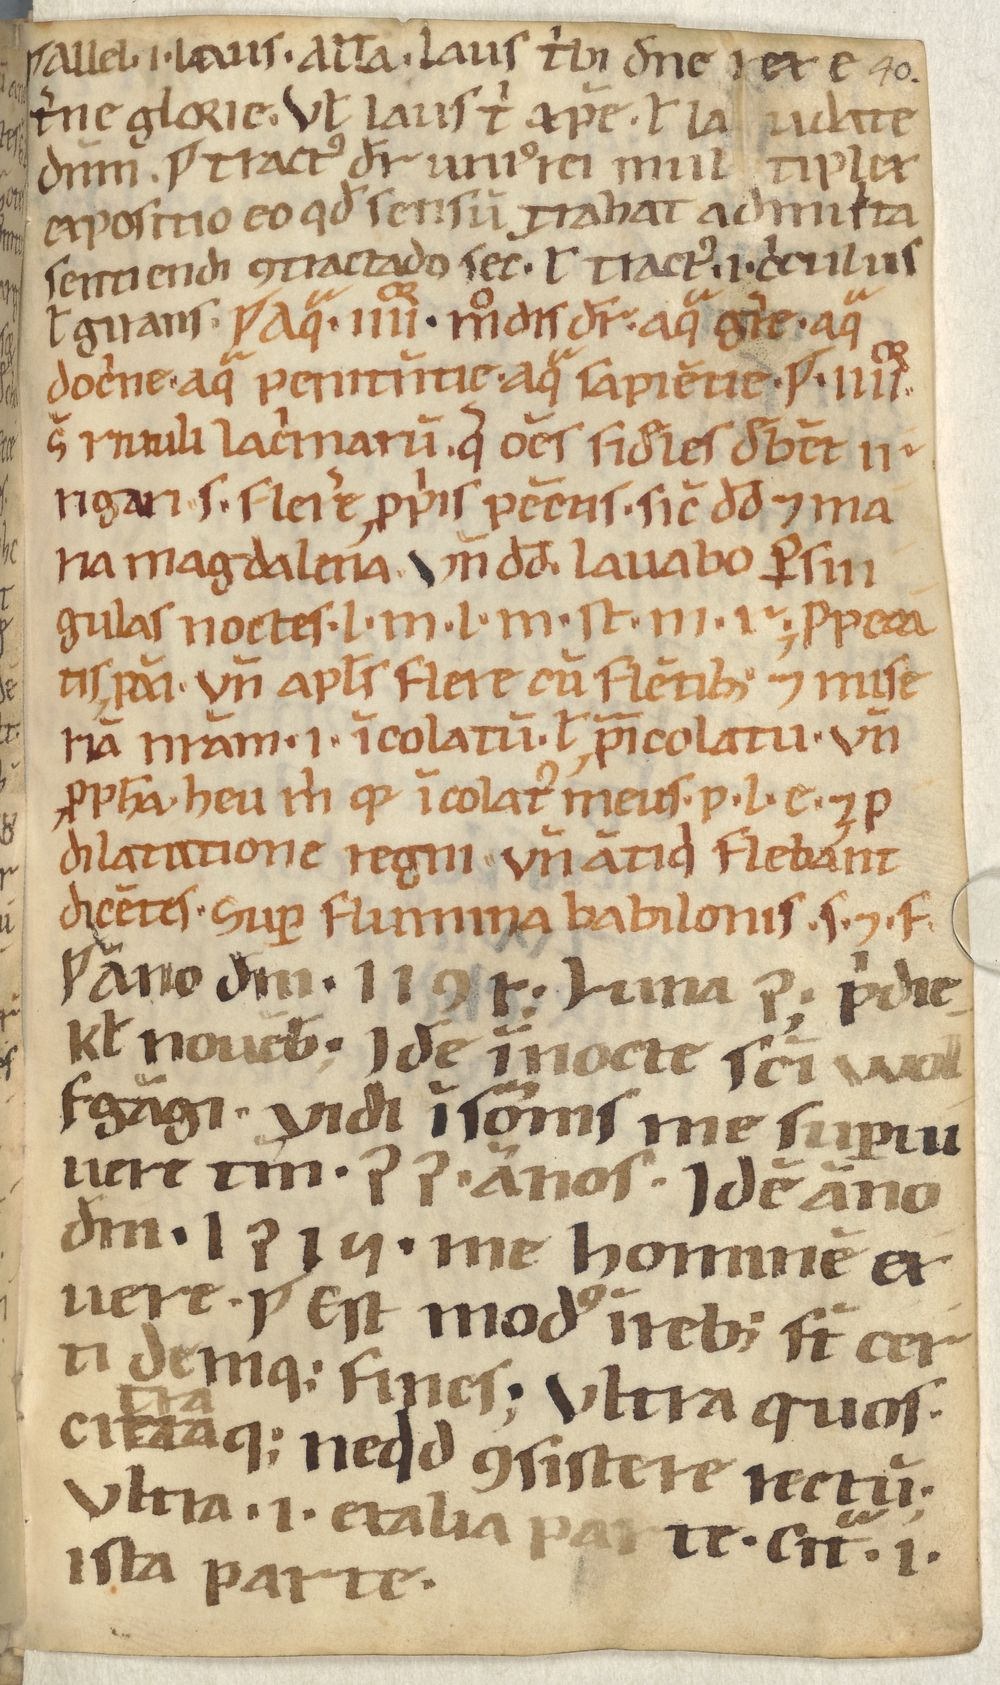 psallet · i · laus · alła · laus t̓bi dn̄e rex e 40.
t̓ne glorie. Vł laus t̓ xp̄e · ł la udate
dn̄m. tractꝰ dr̄ uniꝰ rei mul tiplex
expositio eo qđ sensū trahat ad mł̓ta
sentiendi ꝯtractādo sēc · ł tractꝰ · i · c̓culus
ł girans. Aq̄ · iiii · m̊dis dr̄ · aq̄ gr̄e · aq̄
doct̓ne · aq̄ penitētie · aq̄ sapiētie · iiii
s̄ riuuli lac̓marū · q̓ oēs fid̓les d̓bēt ir
rigari · s · flere ꝓp̓is pēcctis · sic̄ dd̄ ⁊ ma
ria magdalena. Vn̄ dd̄. lauabo ꝑ sin
gulas noctes · l · m · l · m · st · m · r; ꝓ pecca
tis ꝓxi · vn̄ apłs flere cū flētib; ⁊ mise
riā nrām · i · īcolatū · ł ꝓīcolatu · vn̄
ꝓpħa · heu m̓ qr īcolatꝰ meus · p · l · e · ⁊ ꝓ
dilatatione regni · vn̄ ātiq̓ flebant
dicētes · Suꝑ flumina babilonis · s · ⁊ · f ·
āno dm̄ · 119 · luna · p̓die
kł nouēb̓; Idē ī nocte sc̄i wol
fgāgi · vidi ī sōmis me suꝑui
uere tm̄ · ānos · Idē āno
dm̄ · me hominē ex
uere · Est modꝰ ī reb; st̄ cer
ti demq; fines; Vltra quos ·
tra
citraq; neqd ꝯsistere rectū ·
Vltra · i · ex alia par te · cit̄ · i ·
ista parte ·